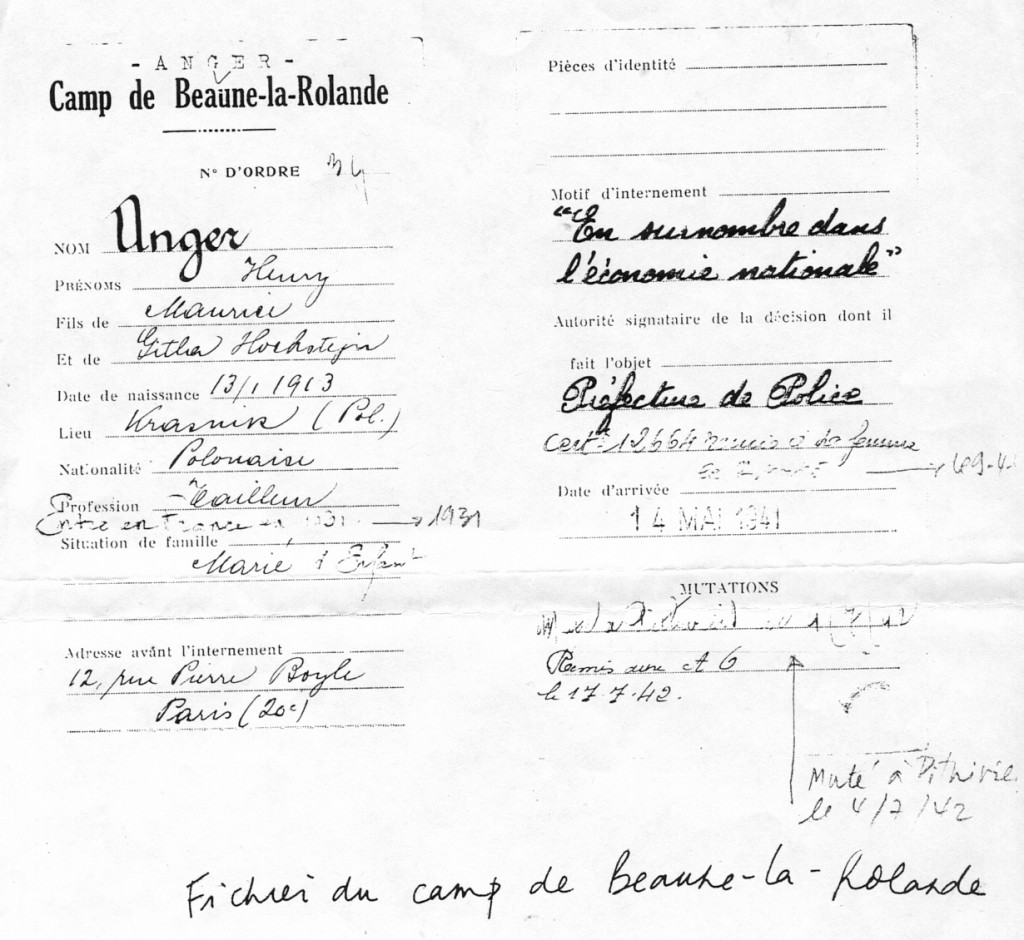 - ANGER -
Camp de Beaune-la-Rolande
N° D'ORDRE 34
NOM Anger
PRÉNOMS Henry
Fils de Maurice
Et de Githa Hochstejn
Date de naissance 13/1 1913
Lieu Krasnik (Pol.)
Nationalité Polonaise
Profession Tailleur
Entré en France en 1931 → 1931
Situation de famille
Marié 1 Enfant
Adresse avant l'internement
12, rue Pierre Boyle
Paris (20e)
Pièces d'identité
Motif d'internement
"En surnombre dans
l'économie nationale"
Autorité signataire de la décision dont il
fait l'objet
Préfecture de Police
12664 remis à sa femme
Date d'arrivée
14 MAI 1941
MUTATIONS
Remis aux A G
le 17.7.42.
Muté à Pithivie
le 4/7/42
Fichier du camp de Beaune-la-Rolande